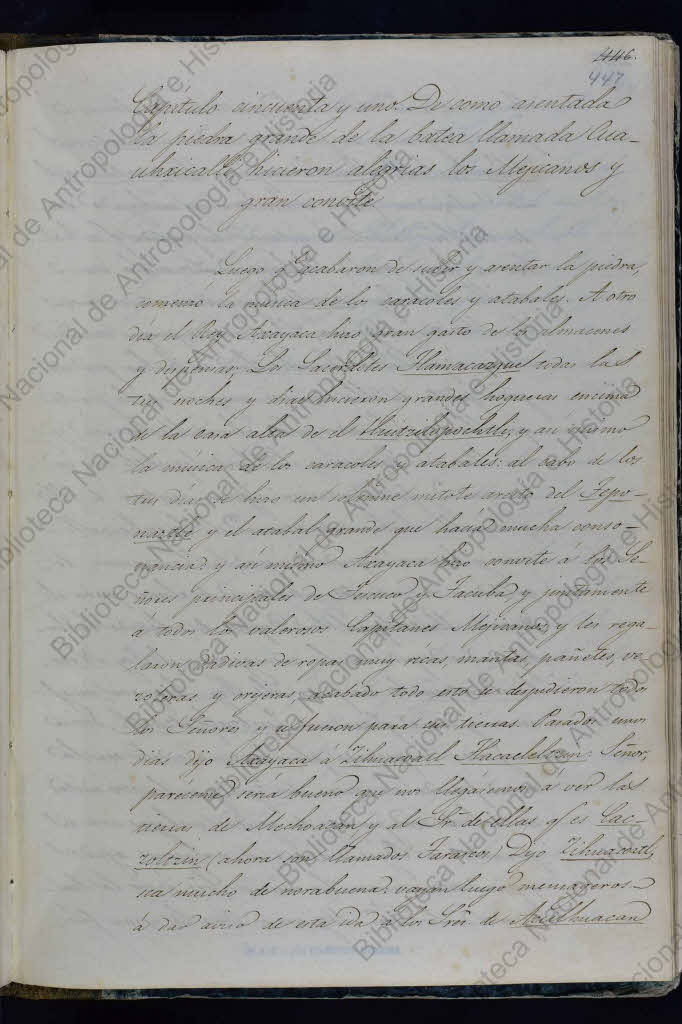 446.
447
Capítulo cincuenta y uno. De como asentada
la piedra grande de la batea llamada Cua-
uhxicalli, hicieron alegrias los Mejicanos y
gran convite.
Luego q.e acabaron de subir y asentar la piedra,
comenzó la música de los caracoles y atabales. A otro
dia el Rey Axayaca hizo gran gasto de los almacenes
y despensas, Los Sacerdotes Tlamacazque todas las
tres noches y dias hicieron grandes hogueras encima
de la casa alta de el Huitzilopochtli, y así mismo
la música de los caracoles y atabales: al cabo de los
tres dias se hizo un solemne mitote areito del Tepo-
naztle y el atabal grande que hacia mucha conso-
nancia: y así mismo Axayaca hizo convite á los Se-
ñores principales de Tescuco y Tacuba y juntamente
á todos los valerosos Capitanes Mejicanos, y les rega-
laron dádivas de ropas muy ricas, mantas, pañetes, ve-
zoleras y orejeras, acabado todo esto se despidieron todos
los Señores y se fueron para sus tierras. Pasados unos
dias dijo Axayaca á Zihuacoatl Tlacaeleltzin: Señor,
pareceme seria bueno que nos llegásemos á ver las
tierras de Mechoacan y al Sr. de ellas q.e es Cac-
zoltzin (ahora son llamados Tarascos) Dijo Zihuacoatl,
sea mucho de norabuena: vayan luego mensageros
á dar aviso de esta ida á los Sres. de Aculhuacan
Biblioteca Nacional de Antropología e Historia